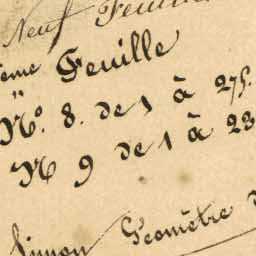 Neuf Feuilles
ème Feuille
"
No. 8. de 1 à 275.
N 9 de 1 à 23
Simon Géomètre